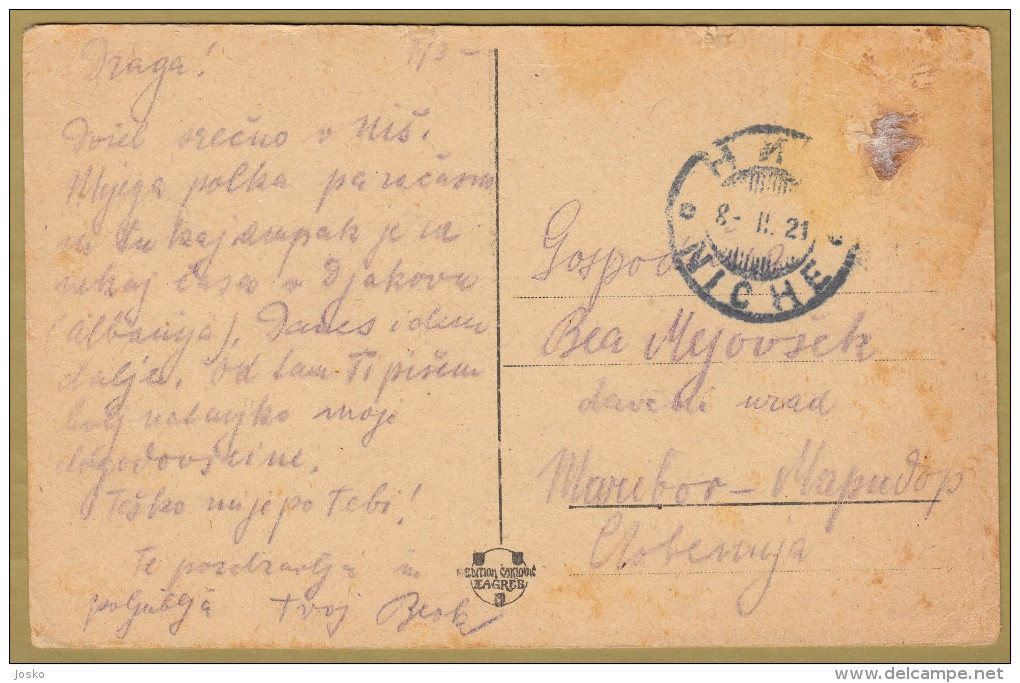 Draga! 7/3 -
Došel srečno v Niš.
Mojega polka
na tukaj ampak je za
nekaj časa v Djakovu
(Albanija). Danes idem
dalje. Od tam Ti pišem
bolj natanjko moje
dogodovščine.
Teško mi je po Tebi!
Te pozdravlja in
poljublja tvoj
НИ
8- II. 21
NICHE
Gospod
Bea Mejovšek
davčni urad
Maribor – Марибор
Slovenija
EDITION ČAKLOVIĆ
ZAGREB
Josko
delcampe.net